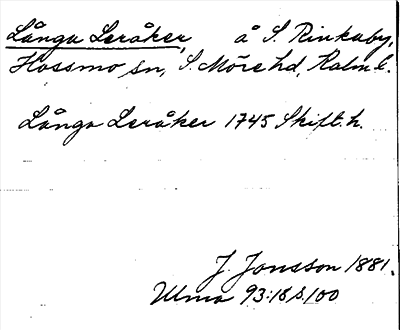 Långa Leråker, å S. Rinkaby,
Hossmo sn, S. Möre hd, Kalm. l.
Långa Leråker 1745 Skift. h.
J. Jonsson 1881.
Ulma 93:18 s. 100